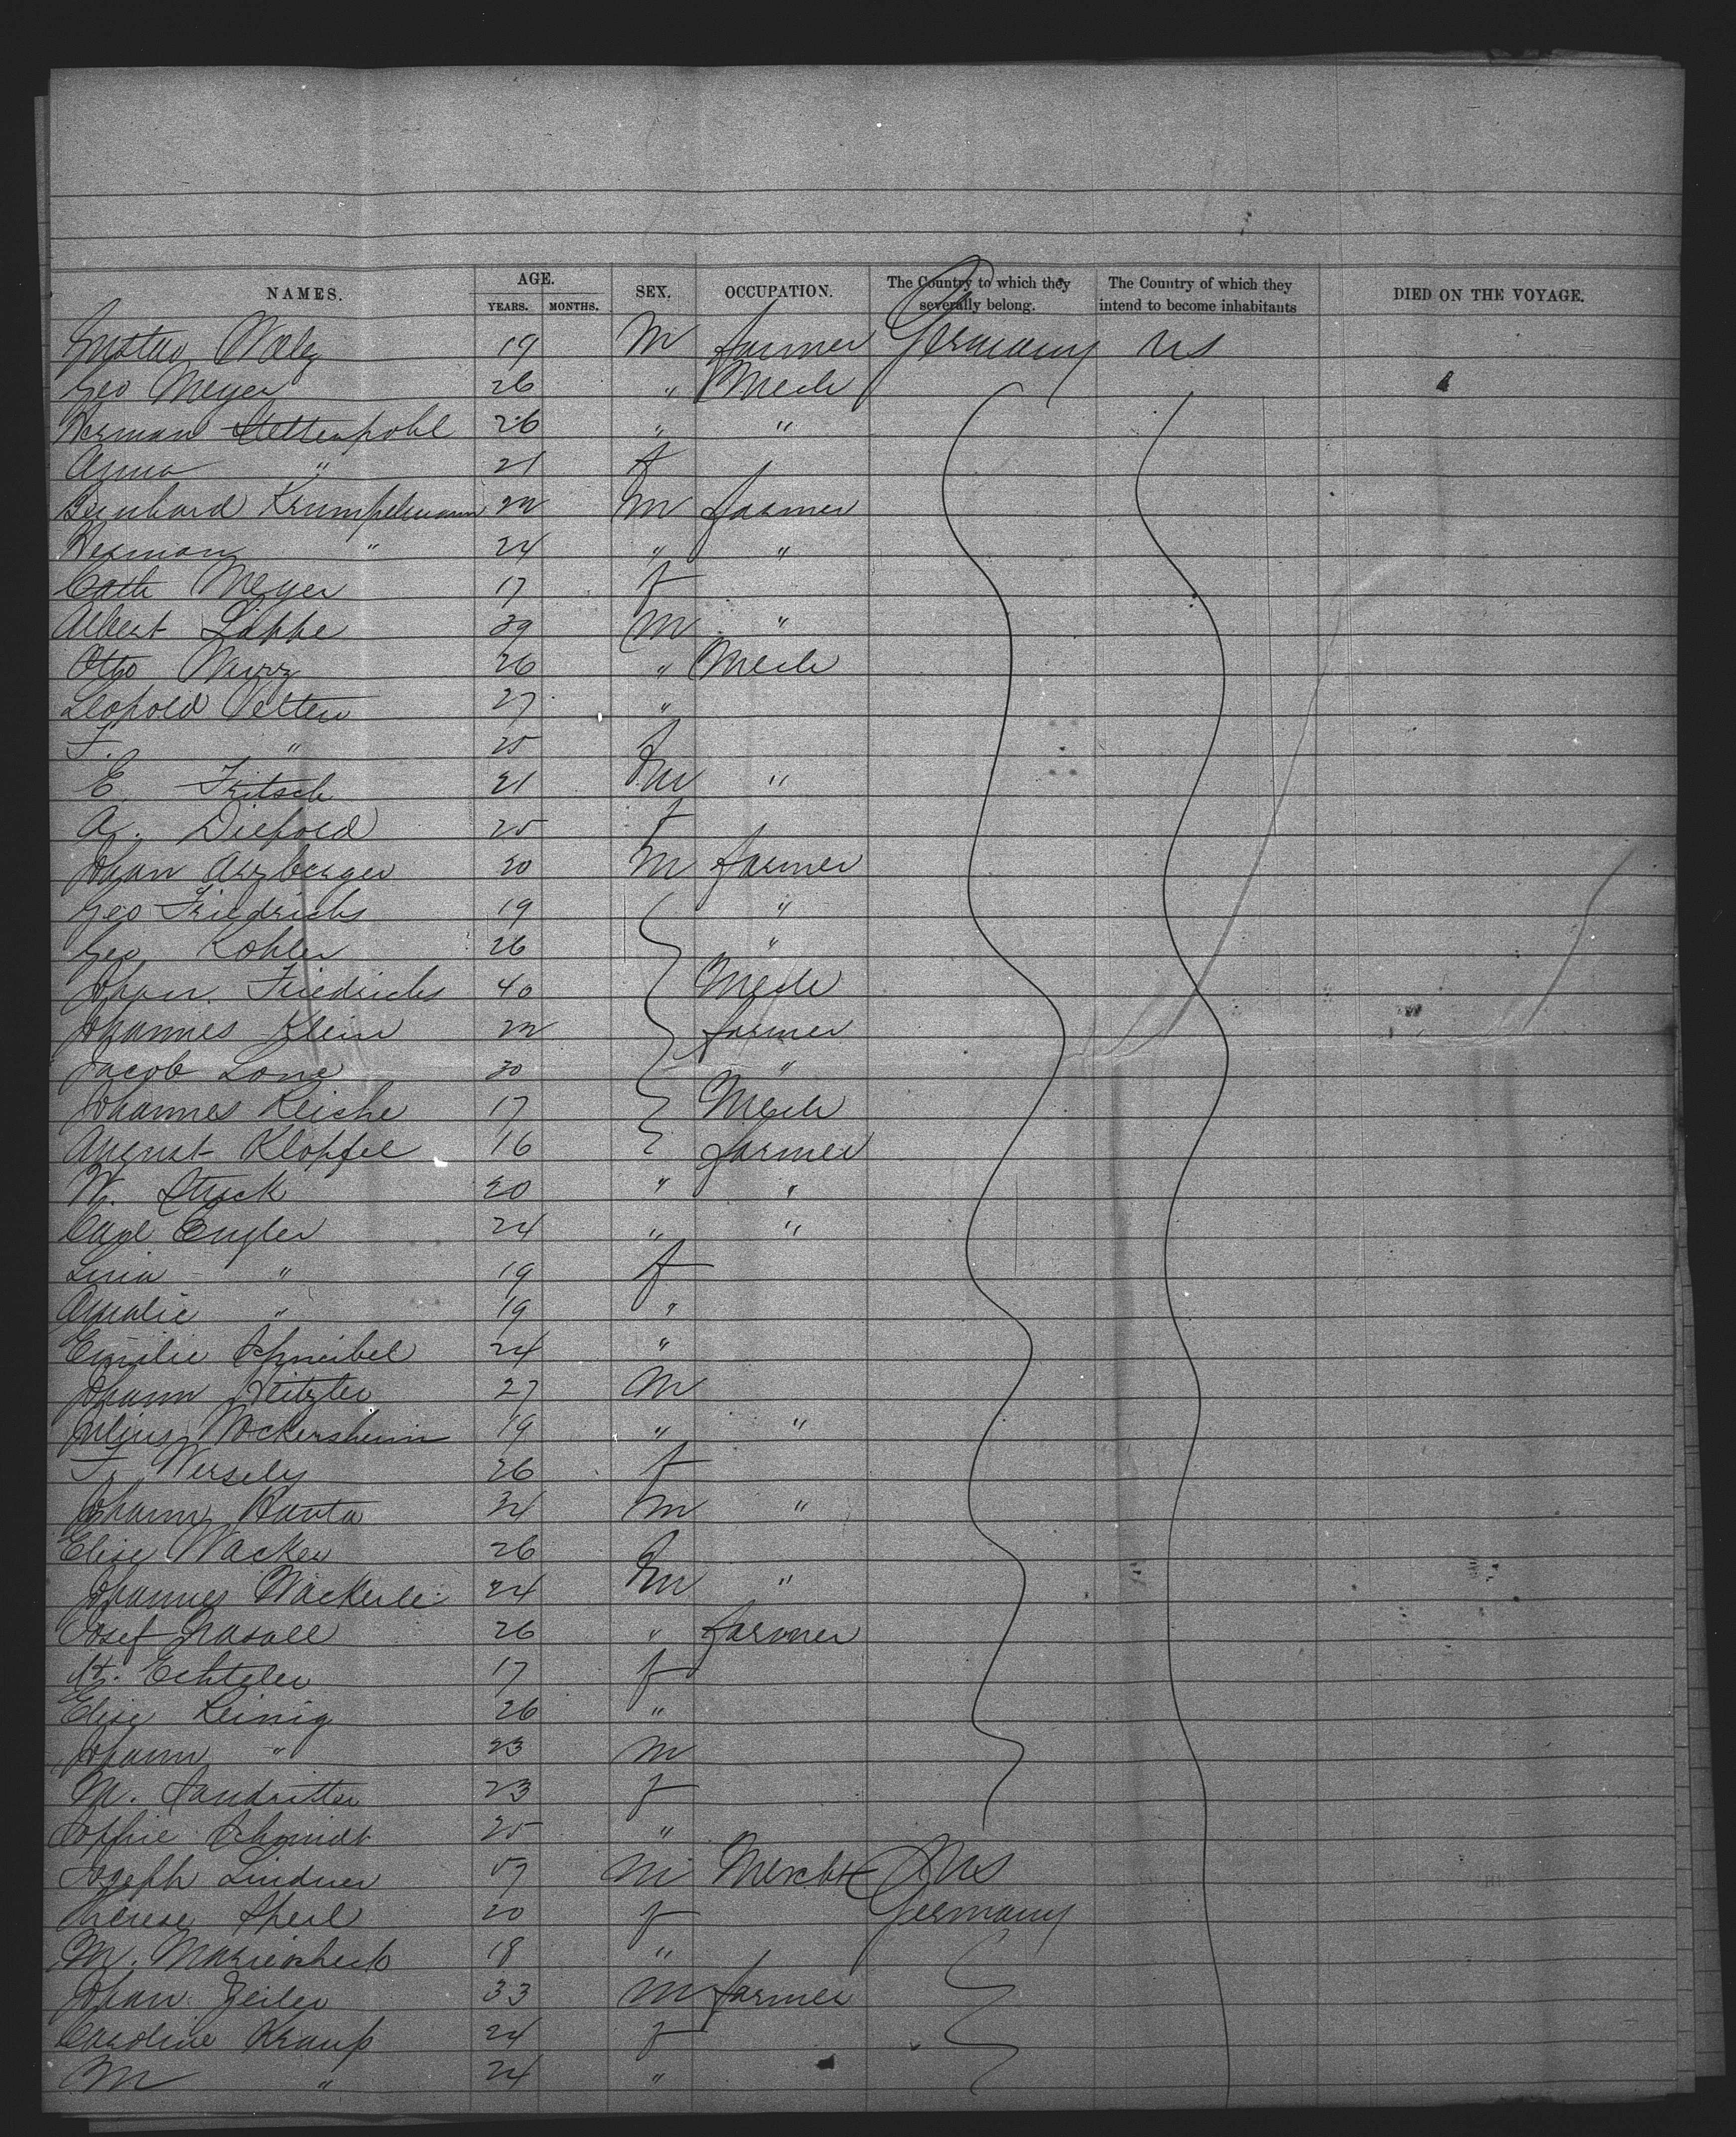 NAMES. AGE. YEARS. MONTHS. SEX. OCCUPATION. The Country to which they severally belong. The Country of which they intend to become inhabitants DIED ON THE VOYAGE.
Gustav 19 M farmer Germany US
Geo Meyer 26 " Mech
Herman Stettenpohl 26 " "
Anna " 21 f
Bernhard Krumpelmann 22 M farmer
Herman " 24 " "
Cath Meyer 17 f
Albert Lappe 39 M "
Otto 26 " Mech
Leopold Vetter 27 "
F. " 25 f
E. Fritsch 21 M "
A. Diepold 25 f
Johan Arzberger 20 M farmer
Geo Friedrichs 19 "
Geo Kohler 26 "
Johan Friedrichs 40 Mech
Johannes Klein 22 farmer
Jacob Long 30 "
Johannes Reiche 17 Mech
August Klopfel 16 farmer
W. Stuck 20 " "
Carl Engler 24 " "
Lina " 19 f
Amalie " 19 "
Emilie Schneibel 24 "
Johann 27 M
Julius Wockersheim 19 " "
Fr. Wersely 26 f
Johann Kauta 34 M "
Elise Wacker 26 f
Johannes Wackerle 24 M "
Josef 26 " farmer
Echtler 17 f
Elise Reinig 26 "
Johann " 23 M
M. Sandritter 23 f
Sophie Schmidt 25 "
Joseph Lindner 57 M Mercht US
Therese Sperl 20 f Germany
M. 18 "
Johan Zeiler 33 M farmer
Caroline Kraus 24 f
M " 24 "